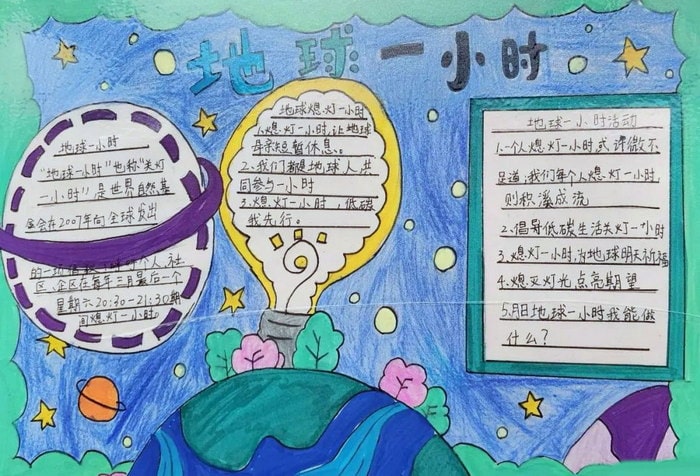 地球一小时
地球一小时
"地球一小时"也称"关灯
一小时"是世界自然基
金会在2007年向全球发出
的一 个人、社
区、企区在每年三月最后一个
星期六20:30-21:30期
间熄灯一小时
地球熄灯一小时
1.熄灯一小时,让地球
母亲短暂休息。
2.我们都是地球人共
同参与一小时
3.熄灯一小时,低碳
我先行。
地球一小时活动
1.一个人熄灯一小时或许微不
足道,我们每个人熄灯一小时,
则积溪成流
2.倡导低碳生活关灯一小时
3.熄灯一小时,为地球明天祈福
4.熄灭灯光点亮期望
5.月日地球一小时我能做
什么?